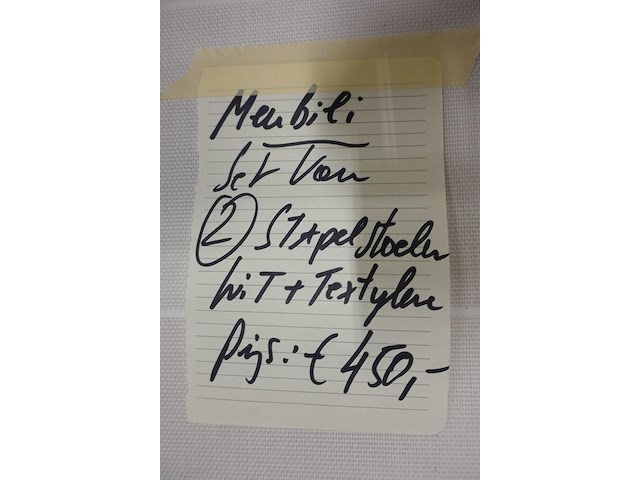 Meubili
Set van
2 Stapelstoelen
wit + Textylen
Prijs: € 450,-